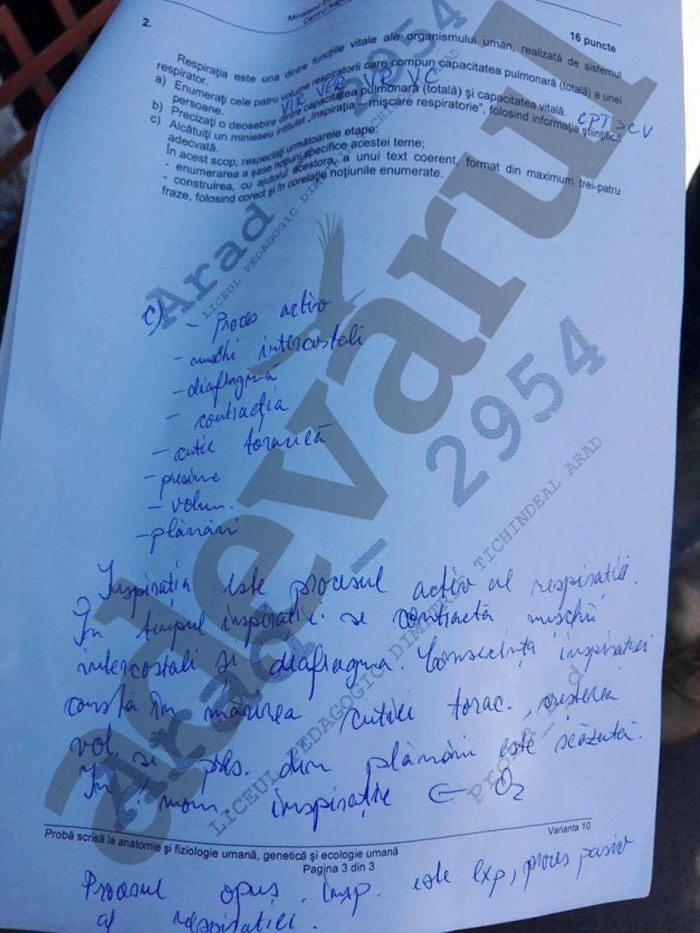 2.
16 puncte
Respirația este una dintre funcțiile vitale ale organismului uman, realizată de sistemul
respirator.
a) Enumerați cele patru volume respiratorii care compun capacitatea pulmonară (totală) a unei
persoane.
VIR VER VR VC
b) Precizați o deosebire dintre capacitatea pulmonară (totală) și capacitatea vitală.
CPT > CV
c) Alcătuiți un minieseu intitulat „Inspirația – mișcare respiratorie”, folosind informația științifică
adecvată.
În acest scop, respectați următoarele etape:
- enumerarea a șase noțiuni specifice acestei teme;
- construirea, cu ajutorul acestora, a unui text coerent, format din maximum trei-patru
fraze, folosind corect și în corelație noțiunile enumerate.
c) - Proces activ
- mușchi intercostali
- diafragma
- contracția
- cutie toracică
- presiune
- volum.
- plămâni
Inspirația este procesul activ al respirației.
În timpul inspirației se contractă mușchii
intercostali și diafragma. Consecința inspirației
constă în mărirea cutiei torac., creșterea
vol. și pres. din plămâni este scăzută.
În mom. inspirație ← O2
Probă scrisă la anatomie și fiziologie umană, genetică și ecologie umană
Varianta 10
Pagina 3 din 3
Procesul opus insp. este exp, proces pasiv
al respirației.
adevarul
Arad
2954
LICEUL PEDAGOGIC DIMITRIE TICHINDEAL ARAD